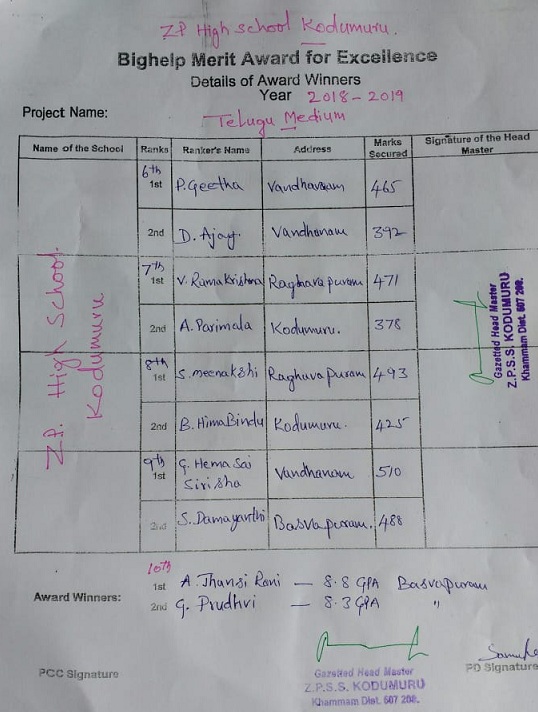 ZP High School Kodumuru.
Bighelp Merit Award for Excellence
Details of Award Winners
Year 2018-2019
Project Name:
Telugu Medium
Name of the School Ranks Ranker's Name Address Marks Secured Signature of the Head Master
Z.P. High School. Kodumuru
6th
1st P. Geetha Vandhanam 465
2nd D. Ajay. Vandhanam 392
7th
1st V. Rama Krishna Raghava puram 471
2nd A. Parimala Kodumuru. 378
8th
1st S. meenakshi Raghava puram 493
2nd B. Hima Bindu Kodumuru. 425
9th
1st G. Hema Sai Sirisha Vandhanam 510
2nd S. Damayanthi Basvapuram. 488
Gazetted Head Master
Z.P.S.S. KODUMURU
Khammam Dist. 507 208.
10th
1st A. Jhansi Rani — 8.8 GPA Basvapuram
Award Winners:
2nd G. Prudhvi — 8.3 GPA "
PCC Signature
Gazetted Head Master
Z.P.S.S. KODUMURU
Khammam Dist. 507 208.
PD Signature